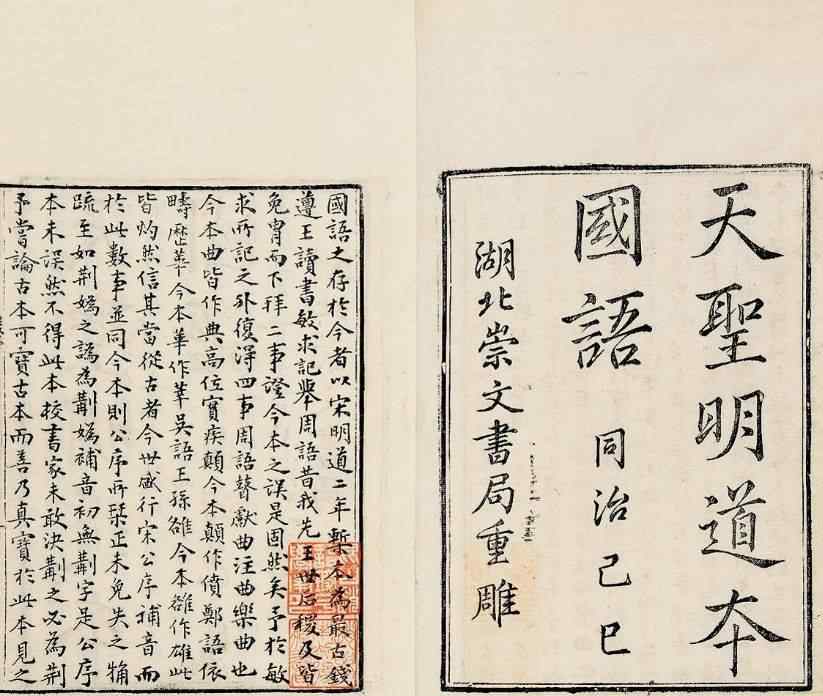 天聖明道本
國語 同治己巳
湖北崇文書局重雕
國語之存於今者以宋明道二年槧本為最古錢
遵王讀書敏求記舉周語昔我先王世后稷及皆
免胄而下拜二事證今本之誤是固然矣予於敏
求所記之外復得四事周語瞽獻曲注曲樂曲也
今本曲皆作典高位實疾顛今本顛作僨鄭語依
疇歷華今本華作莘吳語王孫雒今本雒作雄此
皆灼然信其當從古者今世盛行宋公序補音而
於此數事並同今本則公序所栞正未免失之觕
疏至如荆嬀之譌為㓝嬀補音初無㓝字是公序
本未誤然不得此本校書家未敢決㓝之必為荆
予嘗論古本可寶古本而善乃真寶於此本見之